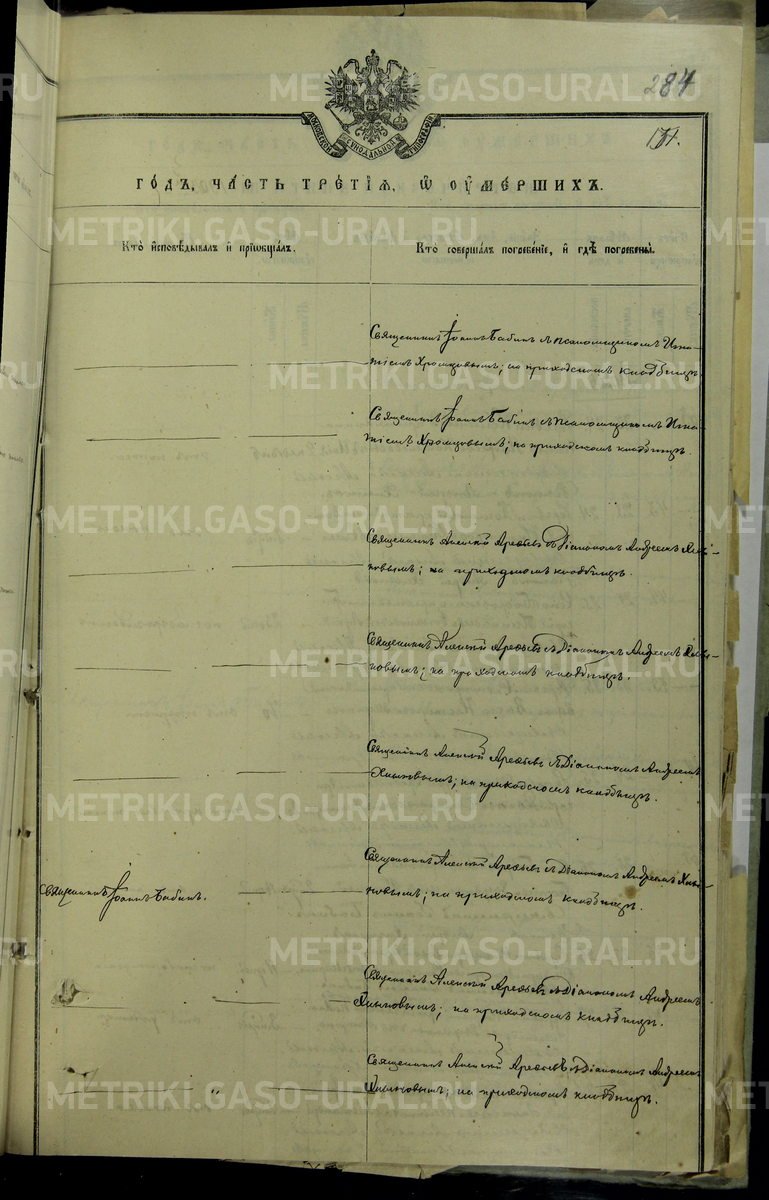 284
МОСКОВСКОЙ СѴНОДАЛЬНОЙ ТИПОГРАФІИ
131.
ГОДЪ, ЧАСТЬ ТРЕТІЯ, Ѿ ОУМЕРШИХЪ.
Кто исповѣдывалъ и пріобщалъ.
Кто совершалъ погребеніе, и гдѣ погребены.
Священникъ Іоаннъ Бабинъ съ псаломщикомъ Игна-
тіемъ Хромцовымъ; на приходскомъ кладбищѣ.
Священникъ Іоаннъ Бабинъ съ псаломщикомъ Игна-
тіемъ Хромцовымъ; на приходскомъ кладбищѣ.
Священникъ Алексій Арефьевъ съ Діакономъ Андреемъ Хлы-
новымъ; на приходскомъ кладбищѣ.
Священникъ Алексій Арефьевъ съ Діакономъ Андреемъ Хлы-
новымъ; на приходскомъ кладбищѣ.
Священникъ Алексій Арефьевъ съ Діакономъ Андреемъ
Хлыновымъ; на приходскомъ кладбищѣ.
Священникъ Іоаннъ Бабинъ.
Священникъ Алексій Арефьевъ съ Діакономъ Андреемъ Хлы-
новымъ; на приходскомъ кладбищѣ.
Священникъ Алексій Арефьевъ съ Діакономъ Андреемъ
Хлыновымъ; на приходскомъ кладбищѣ.
Священникъ Алексій Арефьевъ съ Діакономъ Андреемъ
Хлыновымъ; на приходскомъ кладбищѣ.
METRIKI.GASO-URAL.RU